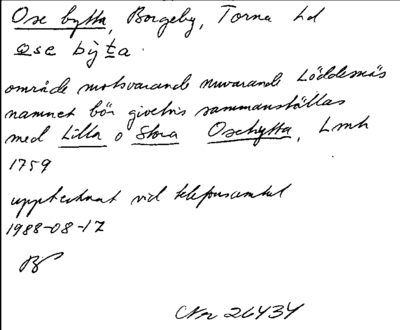 Ose bytta, Borgeby, Torna hd
ose bỳta.
område motsvarande nuvarande Löddesnäs
namnet bör givetvis sammanställas
med Lilla o Stora Osebytta, Lmh
1759
upptecknat vid telefonsamtal
1988-08-17
Nr 26434